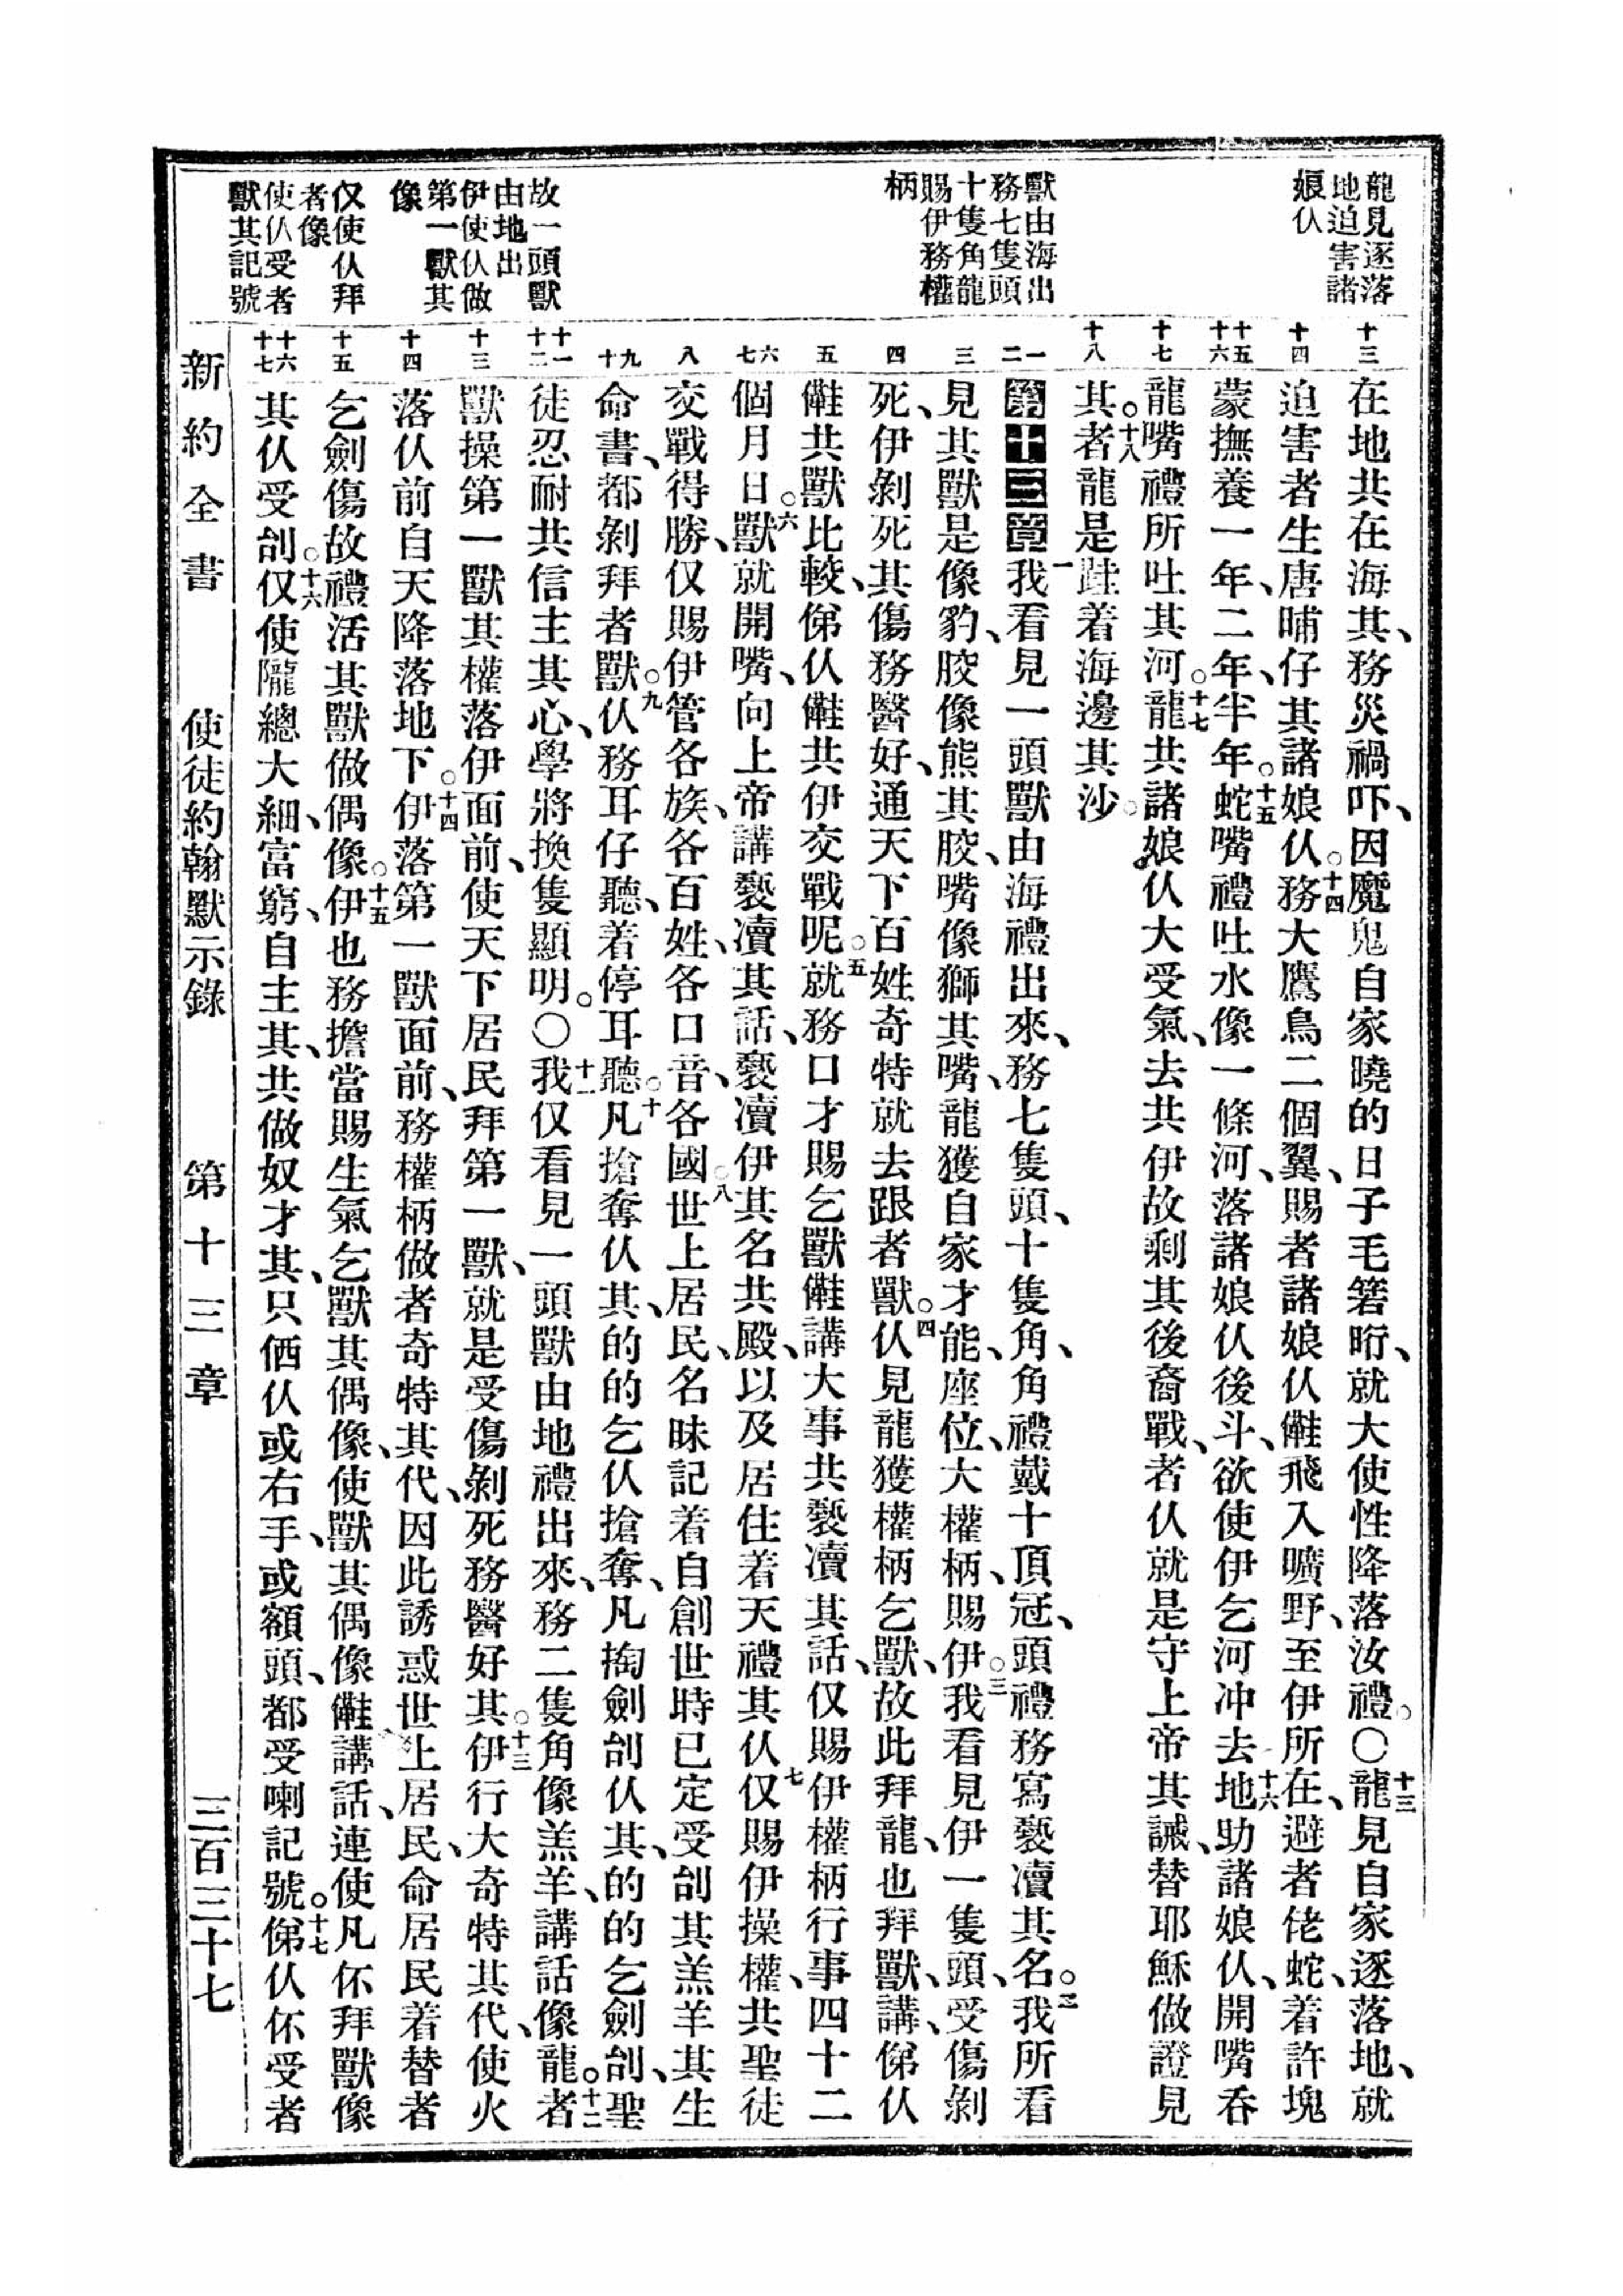 龍見逐落
地迫害諸
娘仈
獸由海出
務七隻頭
十隻角龍
賜伊務權
柄
故一頭獸
由地出
伊使仈做
第一獸其
像
仅使仈拜
者像
使仈受者
獸其記號
十三
十四
十五 十六
十七
十八
一 二
三
四
五
六 七
八
九 十
十一 十二
十三
十四
十五
十六 十七
在地共在海其、務災禍吓、因魔鬼自家曉的日子毛箬𣍐、就大使性降落汝禮。〇十三龍見自家逐落地、就
迫害者生唐晡仔其諸娘仈。十四務大鷹鳥二個翼、賜者諸娘仈㑲飛入曠野、至伊所在、避者佬蛇、着許塊
蒙撫養一年、二年、半年。十五蛇嘴禮吐水像一條河、落諸娘仈後斗、欲使伊乞河冲去。十六地助諸娘仈、開嘴吞
龍嘴禮所吐其河。十七龍共諸娘仈大受氣、去共伊故剩其後裔戰、者仈就是守上帝其誡、替耶穌做證見
其。十八者龍是跬着海邊其沙。
第十三章一我看見一頭獸由海禮出來、務七隻頭、十隻角、角禮戴十頂冠、頭禮務寫褻瀆其名。二我所看
見其獸是像豹、骹像熊其骹、嘴像獅其嘴、龍獲自家才能、座位、大權柄、賜伊。三我看見伊一隻頭、受傷剝
死、伊剝死其傷務醫好、通天下百姓奇特就去跟者獸。四仈見龍獲權柄乞獸、故此拜龍、也拜獸、講、俤仈
㑲共獸比較、俤仈㑲共伊交戰呢。五就務口才賜乞獸㑲講大事共褻瀆其話、仅賜伊權柄行事四十二
個月日。六獸就開嘴、向上帝講褻瀆其話、褻瀆伊其名共殿、以及居住着天禮其仈。七仅賜伊操權、共聖徒
交戰得勝、仅賜伊管各族、各百姓、各口音、各國。八世上居民、名昧記着自創世時已定受刣其羔羊其生
命書、都剝拜者獸。九仈務耳仔聽、着停耳聽。十凡搶奪仈其、的的乞仈搶奪、凡掏劍刣仈其、的的乞劍刣、聖
徒忍耐共信主其心、學將換隻顯明。〇十一我仅看見一頭獸由地禮出來、務二隻角像羔羊、講話像龍。十二者
獸操第一獸其權落伊面前、使天下居民拜第一獸、就是受傷剝死務醫好其。十三伊行大奇特其代、使火
落仈前自天降落地下。十四伊落第一獸面前、務權柄做者奇特其代、因此誘惑世上居民、命居民着替者
乞劍傷故禮活其獸做偶像。十五伊也務擔當賜生氣乞獸其偶像、使獸其偶像㑲講話、連使凡伓拜獸像
其仈受刣。十六仅使隴總大細、富窮、自主其、共做奴才其、只俩仈或右手、或額頭、都受喇記號。十七俤仈伓受者
新約全書 使徒約翰默示錄 第十三章 三百三十七